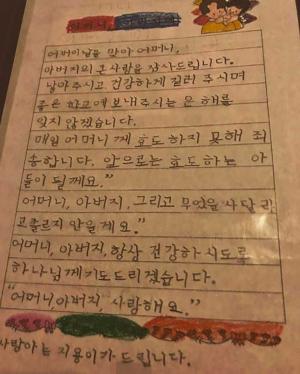 어버이날을 맞아 어머니,
아버지의 큰사랑을 감사드립니다.
낳아주시고 건강하게 길러 주시며
좋은 학교에 보내주시는 은혜를
잊지 않겠습니다.
매일 어머니께 효도하지 못해 죄
송합니다. 앞으로는 효도하는 아
들이 될께요.”
어머니, 아버지, 그리고 무엇을 사달라
고 졸르지 안을게요.”
어머니, 아버지, 항상 건강하시도록
하나님께 기도드리겠습니다.
“어머니 아버지, 사랑해요.”
사랑하는 지용이가 드립니다.